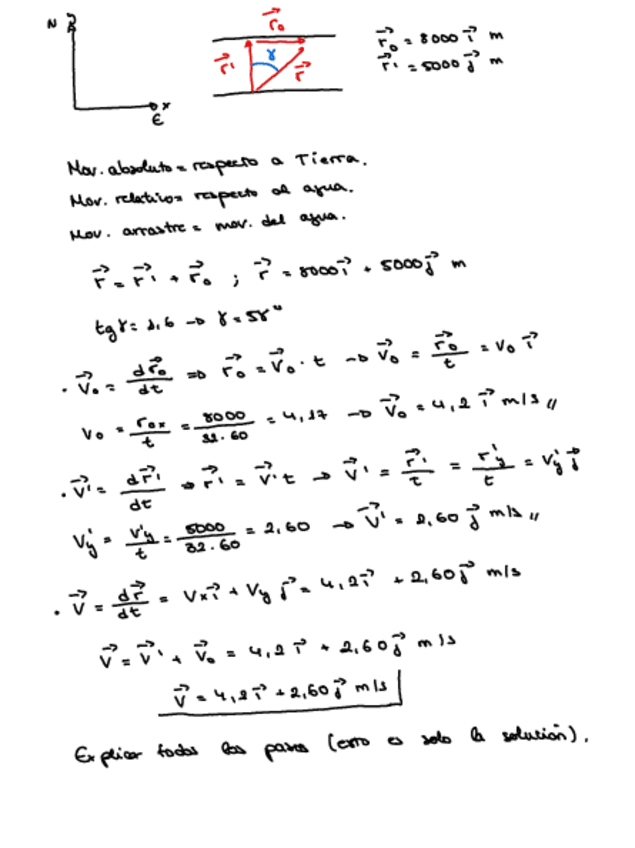 N y
x
E
r⃗₀
r⃗'
γ
r⃗
r⃗₀ = 8000 i⃗ m
r⃗' = 5000 j⃗ m
Mov. absoluto = respecto a Tierra.
Mov. relativo = respecto al agua.
Mov. arrastre = mov. del agua.
r⃗ = r⃗' + r⃗₀ ; r⃗ = 8000 i⃗ + 5000 j⃗ m
tg γ = 1,6 → γ = 58°
· V⃗₀ = dr⃗₀/dt ⇒ r⃗₀ = V⃗₀ · t → V⃗₀ = r⃗₀/t = V₀ i⃗
V₀ = r₀ₓ/t = 8000/32·60 = 4,17 → V⃗₀ = 4,2 i⃗ m/s //
· V⃗' = dr⃗'/dt ⇒ r⃗' = V⃗' t → V⃗' = r⃗'/t = r'y/t = V'y j⃗
V'y = V'y/t = 5000/32·60 = 2,60 → V⃗' = 2,60 j⃗ m/s //
· V⃗ = dr⃗/dt = Vx i⃗ + Vy j⃗ = 4,2 i⃗ + 2,60 j⃗ m/s
V⃗ = V⃗' + V⃗₀ = 4,2 i⃗ + 2,60 j⃗ m/s
V⃗ = 4,2 i⃗ + 2,60 j⃗ m/s
Explicar todos los pasos (esto es solo la solución).